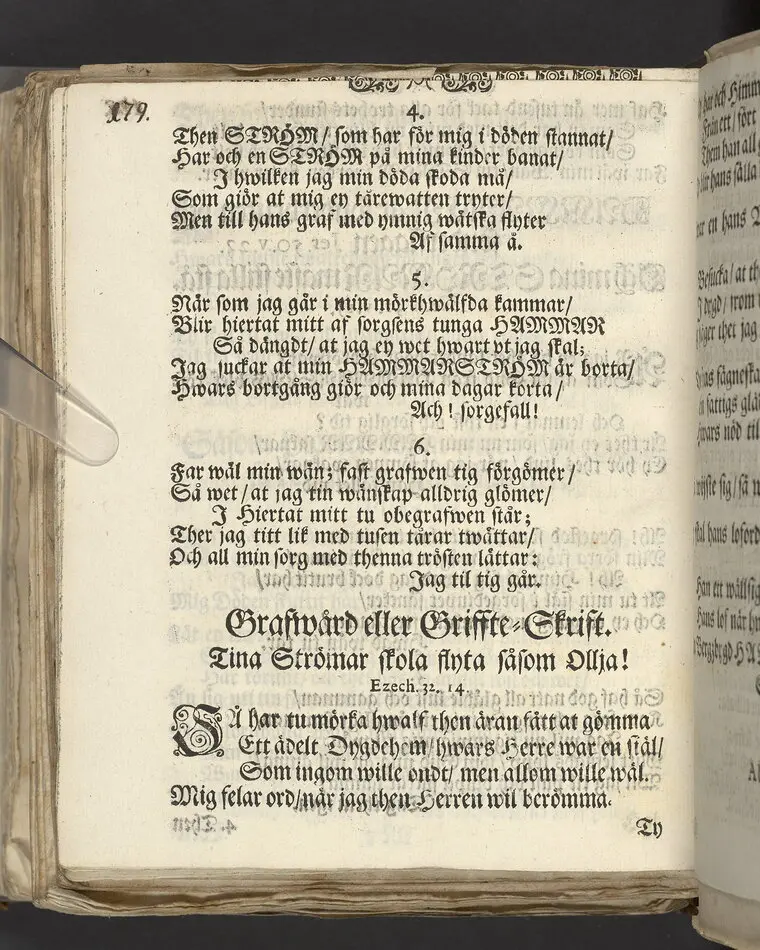 179.
4.
Then STRÖM/ som har för mig i döden stannat/
Har och en STRÖM på mina kinder banat/
I hwilken jag min döda skoda må/
Som giör at mig ey tårewatten tryter/
Men till hans graf med ymnig wätska flyter
Af samma å.
5.
När som jag går i min mörkhwälfda kammar/
Blir hiertat mitt af sorgsens tunga HAMMAR
Så dängdt/ at jag ey wet hwart vt jag skal;
Jag suckar at min HAMMARSTRÖM är borta/
Hwars bortgång giör och mina dagar korta/
Ach! sorgefall!
6.
Far wäl min wän; fast grafwen tig förgömer/
Så wet/ at jag tin wänskap alldrig glömer/
I Hiertat mitt tu obegrafwen står;
Ther jag titt lik med tusen tårar twättar/
Och all min sorg med thenna trösten lättar:
Jag til tig går.
Grafwård eller Griffte-Skrift.
Tina Strömar skola flyta såsom Ollja!
Ezech. 32. 14.
SÅ har tu mörka hwalf then äran fått at gömma
Ett ädelt Dygdehem/ hwars Herre war en siäl/
Som ingom wille ondt/ men allom wille wäl.
Mig felar ord/ när jag then Herren wil berömma.
Ty